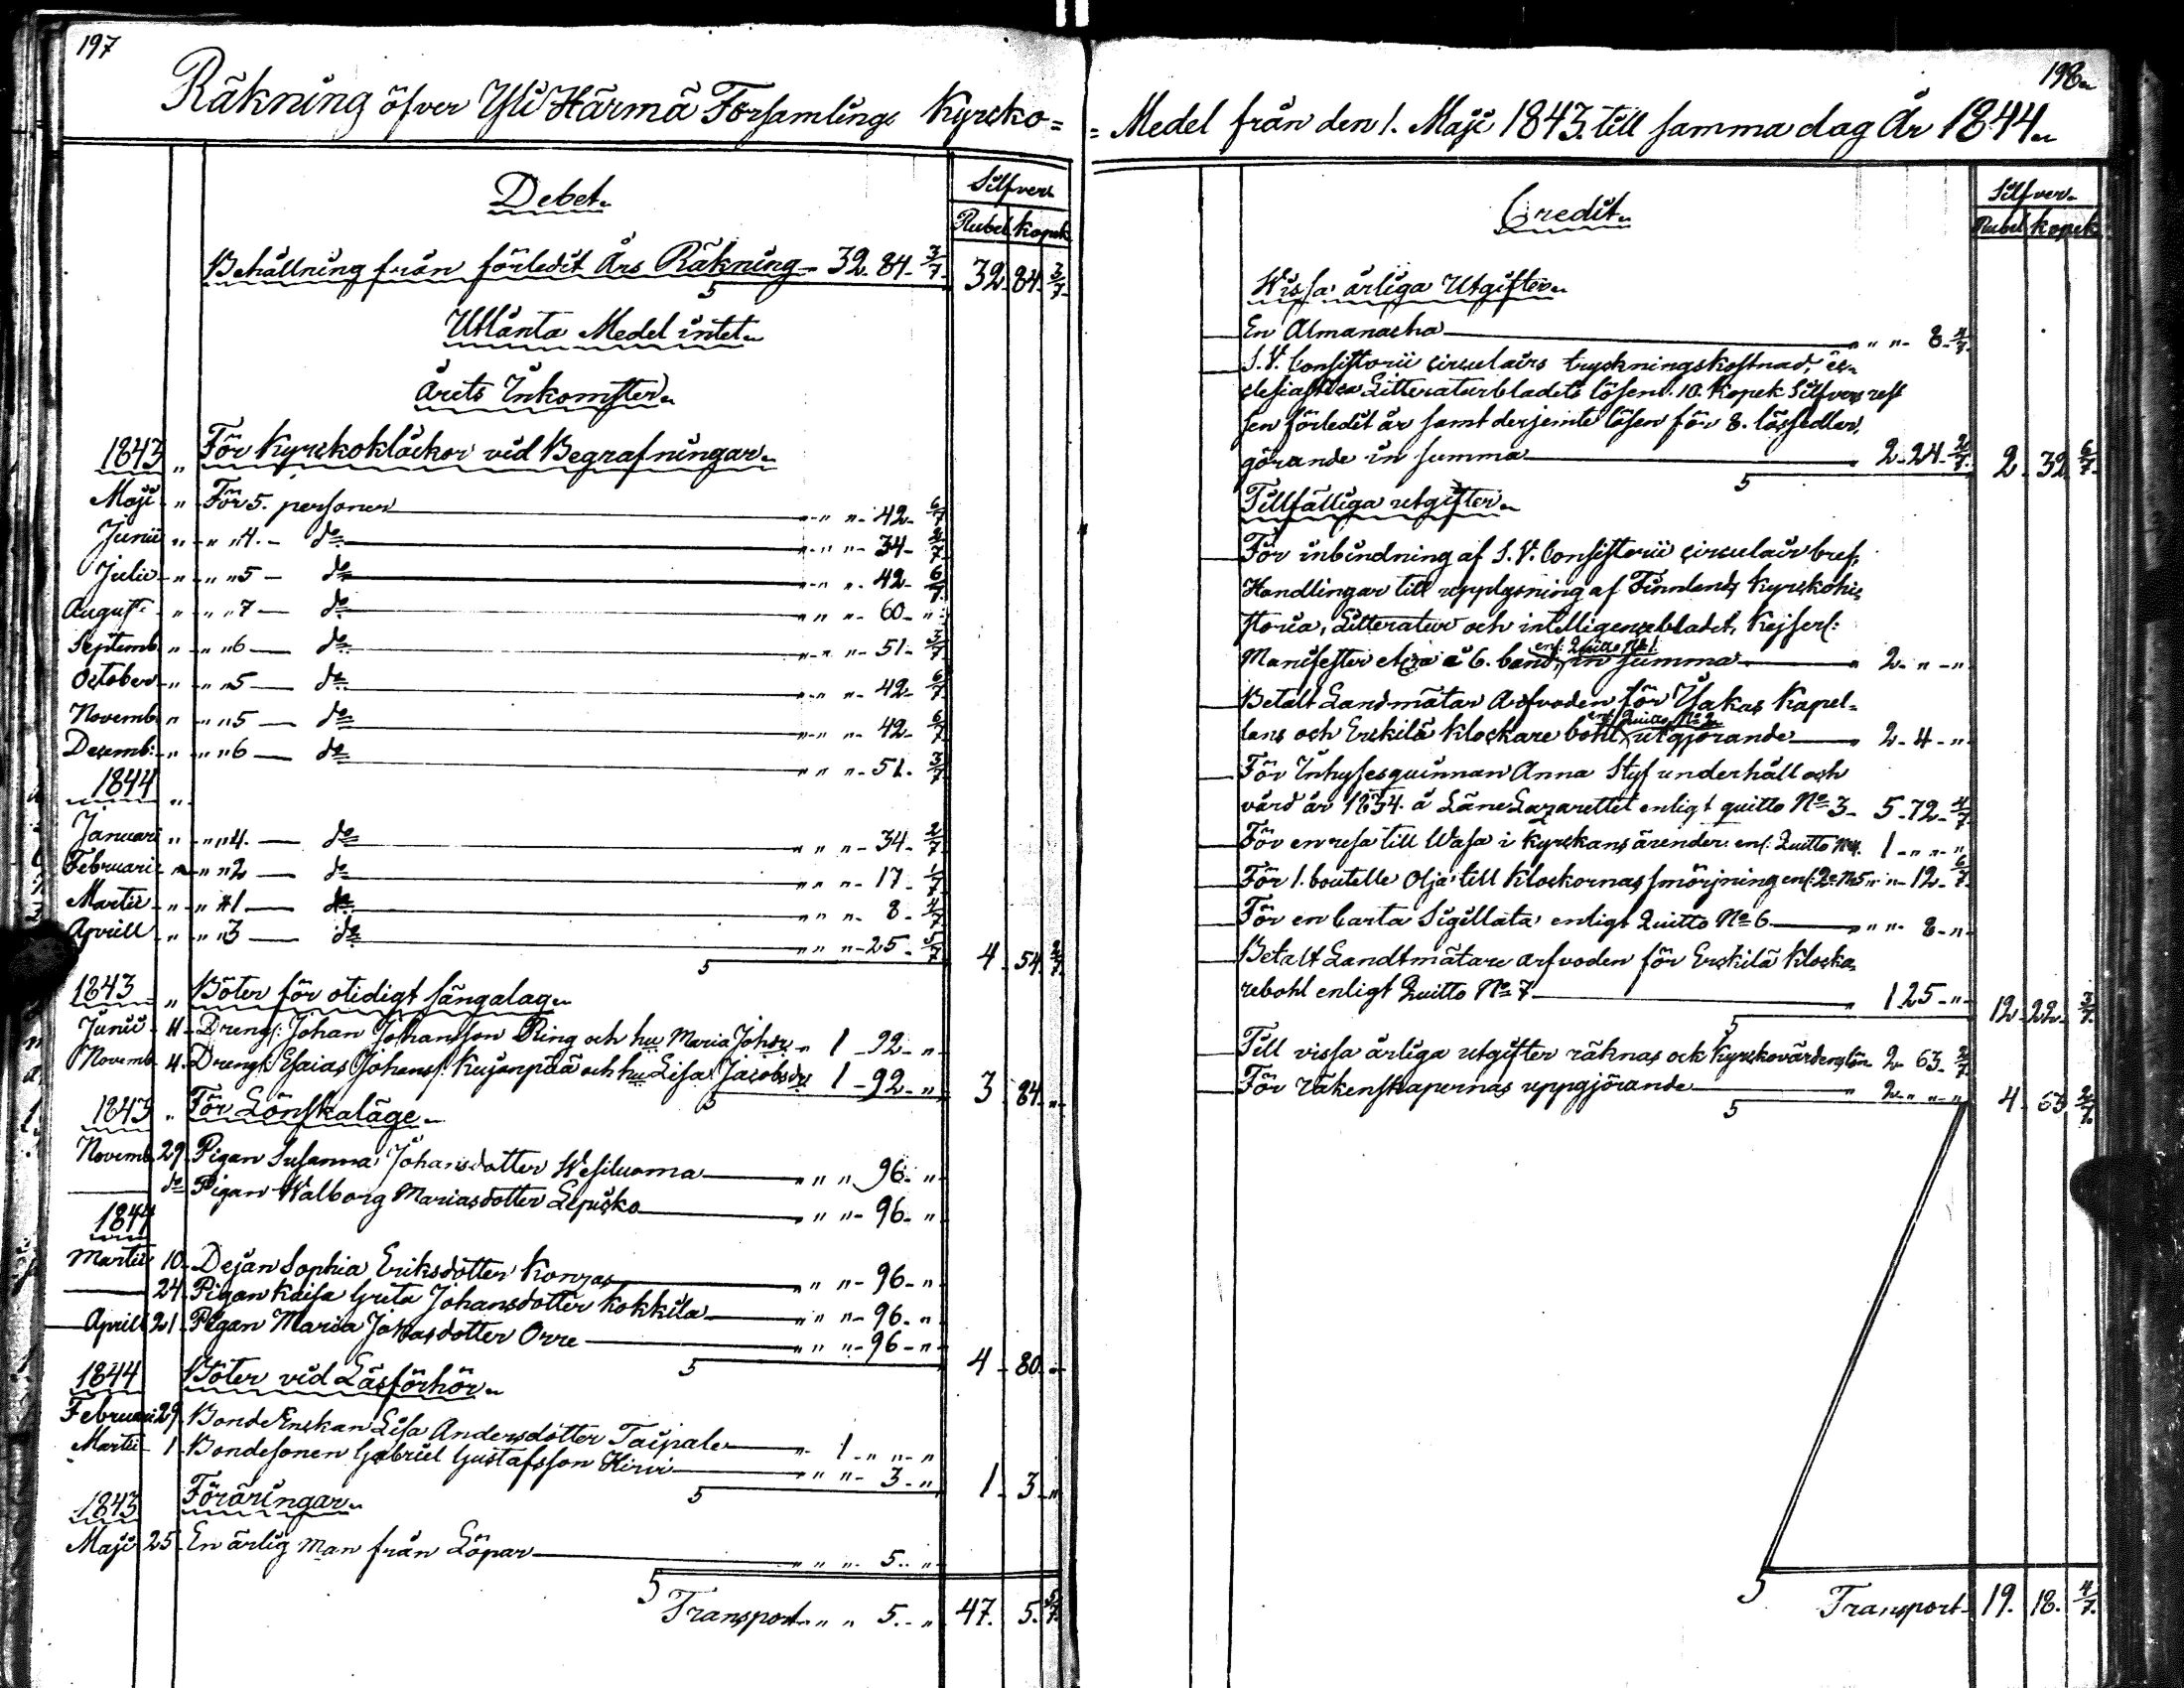 197
Räkning öfver Yli Härmä Församlings Kyrcko=
Debet.
Silfver
Rubel kopek
Behållning från förledit Års Räkning - 32. 84. 3/7 32. 84. 3/7
Utlänta Medel intet.
Årets Inkomster.
1843 " För Kyrckoklåckor vid Begrafningar.
Maji " För 5. personer " " " 42. 6/7
Junii " " " 4. - do " " " 34. 2/7
Julii " " " 5 - do " " " 42. 6/7
August " " " 7 - do " " " 60. "
Septemb. " " " 6 - do " " " 51. 3/7
October " " " 5 - do " " " 42. 6/7
Novemb. " " " 5 - do " " " 42. 6/7
Decemb: " " " 6 - do " " " 51. 3/7
1844 "
Januari " " " 4. - do " " " 34. 2/7
Februari " " " 2 - do " " " 17. 1/7
Martii " " " 1 - do " " " 8. 4/7
Aprill " " " 3 - do " " " 25. 5/7 4. 54. 2/7
1843 " Böter för otidigt sängalag.
Junii 4. Drengs: Johan Johansson Ring och hu Maria Johsdr " 1 - 92 - "
Novemb. 4. Drengs: Esaias Johanss: Kujanpää och hu Lisa Jacobsdr 1 - 92 - " 3. 84. "
1843 " För Lönskaläge.
Novemb. 29. Pigan Susanna Johansdotter Wesiluoma " " " 96. "
do Pigan Walborg Mariasdotter Lepisko " " " 96. "
1844
Martii 10. Dejan Sophia Eriksdotter Konzas " " " 96 - "
24. Pigan Kaisa Greta Johansdotter Kokkila " " " 96. "
Aprill 21. Pigan Maria Jonasdotter Orre " " " 96 - " 4. 80. "
1844 Böter vid Läsförhör.
Februari 29. Bonde Enckan Lisa Andersdotter Taipale " 1 - " " - "
Martii 1. Bondesonen Gabriel Gustafsson Hirvi " " " 3 - " 1. 3. "
1843 Föräringar.
Maji 25. En ärlig man från Löpar " " " 5. "
Transport " " 5. - " 47. 5. 5/7
198.
= Medel från den 1. Maji 1843. till samma dag År 1844.
Credit.
Silfver.
Rubel kopek
Wissa årliga Utgifter.
En Almanacka " " " 8. 4/7
S. V. Consistorii circulairs tryckningskostnad, ec=
clesiastica Litteraturbladets lösen. 10. Kopek Silfver rest
sen förledit år samt derjemte lösen för 8. låssedlar,
görande in summa 2. 24. 2/7 2. 32. 6/7
Tillfälliga utgifter.
För inbindning af S. V. Consistorii circulair bref,
Handlingar till upplysning af Finnlands Kyrckohi=
storia, Litteratur och intelligensbladet, Kejserl:
enl: Quitto No 1.
Manifester etc:ra å 6. band, in summa " 2. " - "
Betalt Landmätar Arfvoden för Yakas Kapel=
enl: Quitto No 2.
lans och Erckilä Klockare bohl, utgjörande " 2. 4 - "
För Inhysesquinnan Anna Styf underhåll och
vård år 1834. å Läne Lazarettet enligt quitto No 3 - 5. 72. 4/7
För en resa till Wasa i Kyrckans ärender. enl: Quitto No 4. 1 - " - "
För 1. boutelle Olja till Klockornas smörjning enl: Qo No 5 " " 12. 6/7
För en Carta Sigillata enligt Quitto No 6 " " " 8 - "
Betalt Landtmätare arfvoden för Erckilä Klocka=
rebohl enligt Quitto No 7 " 1 25 - " 12. 22. 3/7
Till vissa årliga utgifter räknas ock Kyrckovärdens lön 2. 63. 2/7
För räkenskapernas uppgjörande " 2. " - " 4. 63. 2/7
Transport 19. 18. 4/7